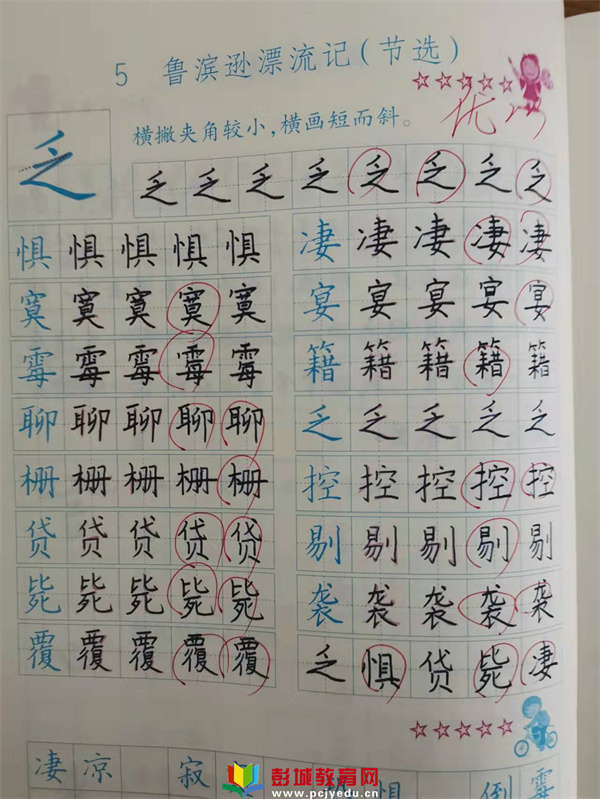 5 鲁滨逊漂流记(节选)
优
横撇夹角较小,横画短而斜。
乏 乏 乏 乏 乏 乏 乏 乏 乏
惧 惧 惧 惧 惧 凄 凄 凄 凄 凄
寞 寞 寞 寞 寞 宴 宴 宴 宴 宴
霉 霉 霉 霉 霉 籍 籍 籍 籍 籍
聊 聊 聊 聊 聊 乏 乏 乏 乏 乏
栅 栅 栅 栅 栅 控 控 控 控 控
贷 贷 贷 贷 贷 剔 剔 剔 剔 剔
毙 毙 毙 毙 毙 袭 袭 袭 袭 袭
覆 覆 覆 覆 覆 乏 惧 贷 毙 凄
凄 凉 寂 惧 倒 霉
彭城教育网
www.pcjyedu.cn